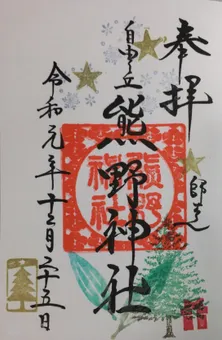 奉拝
師走
自由が丘
熊野神社
令和元年十二月二十五日